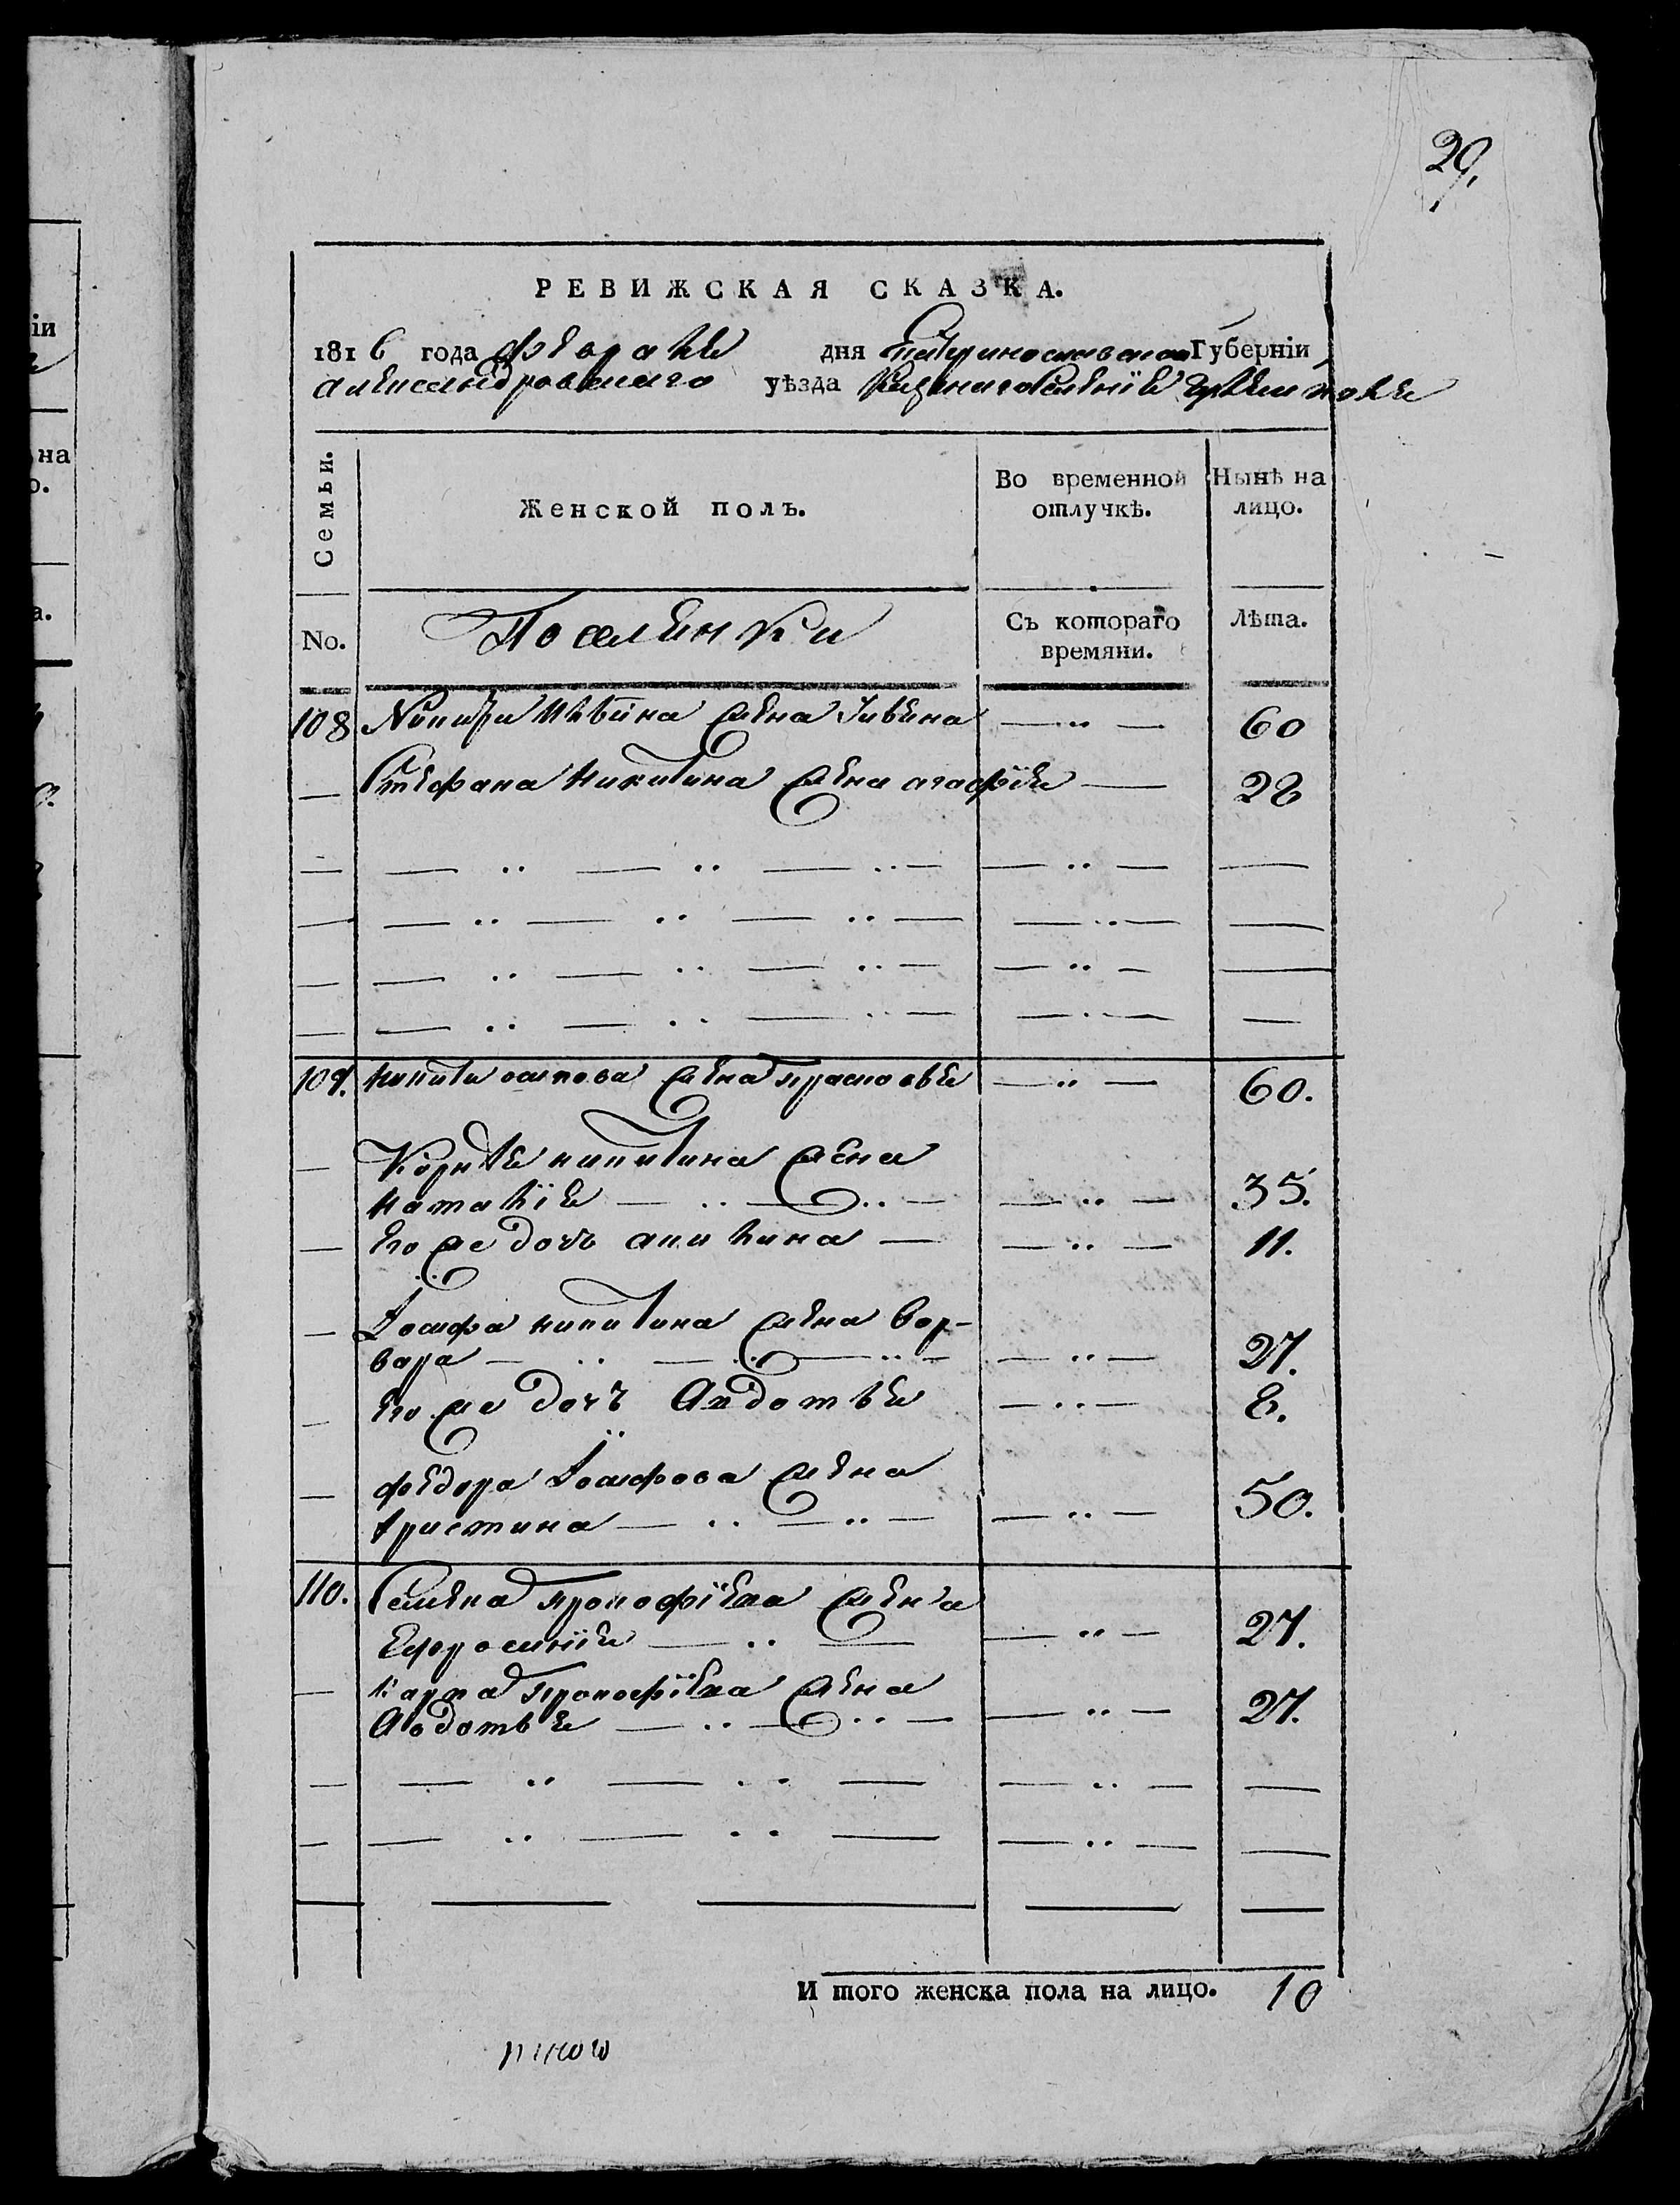 29,
РЕВИЖСКАЯ СКАЗКА.
1816 года февраля дня Екатеринославской Губерніи
александровскаго уѣзда
Семьи.
Женской полъ.
Во временной отлучкѣ.
Нынѣ на лицо.
No.
Поселянки
Съ котораго времяни.
Лѣта.
108 Никиты жена 60
— Стефана Никитина жена агафія — 28
109. никиты осипова жена прасковья — 60.
— Корнея никитина жена
наталія — 35.
— Его же дочь акилина — 11.
— Іосифа никитина жена вар-
вара — 27.
— Его же дочь Авдотья — 8.
— федора Іосифова жена
христина — 50.
110. Семена прокофіева жена
Ефросинія — 27.
— карпа прокофіева жена
Авдотья — 27.
И того женска пола на лицо. 10